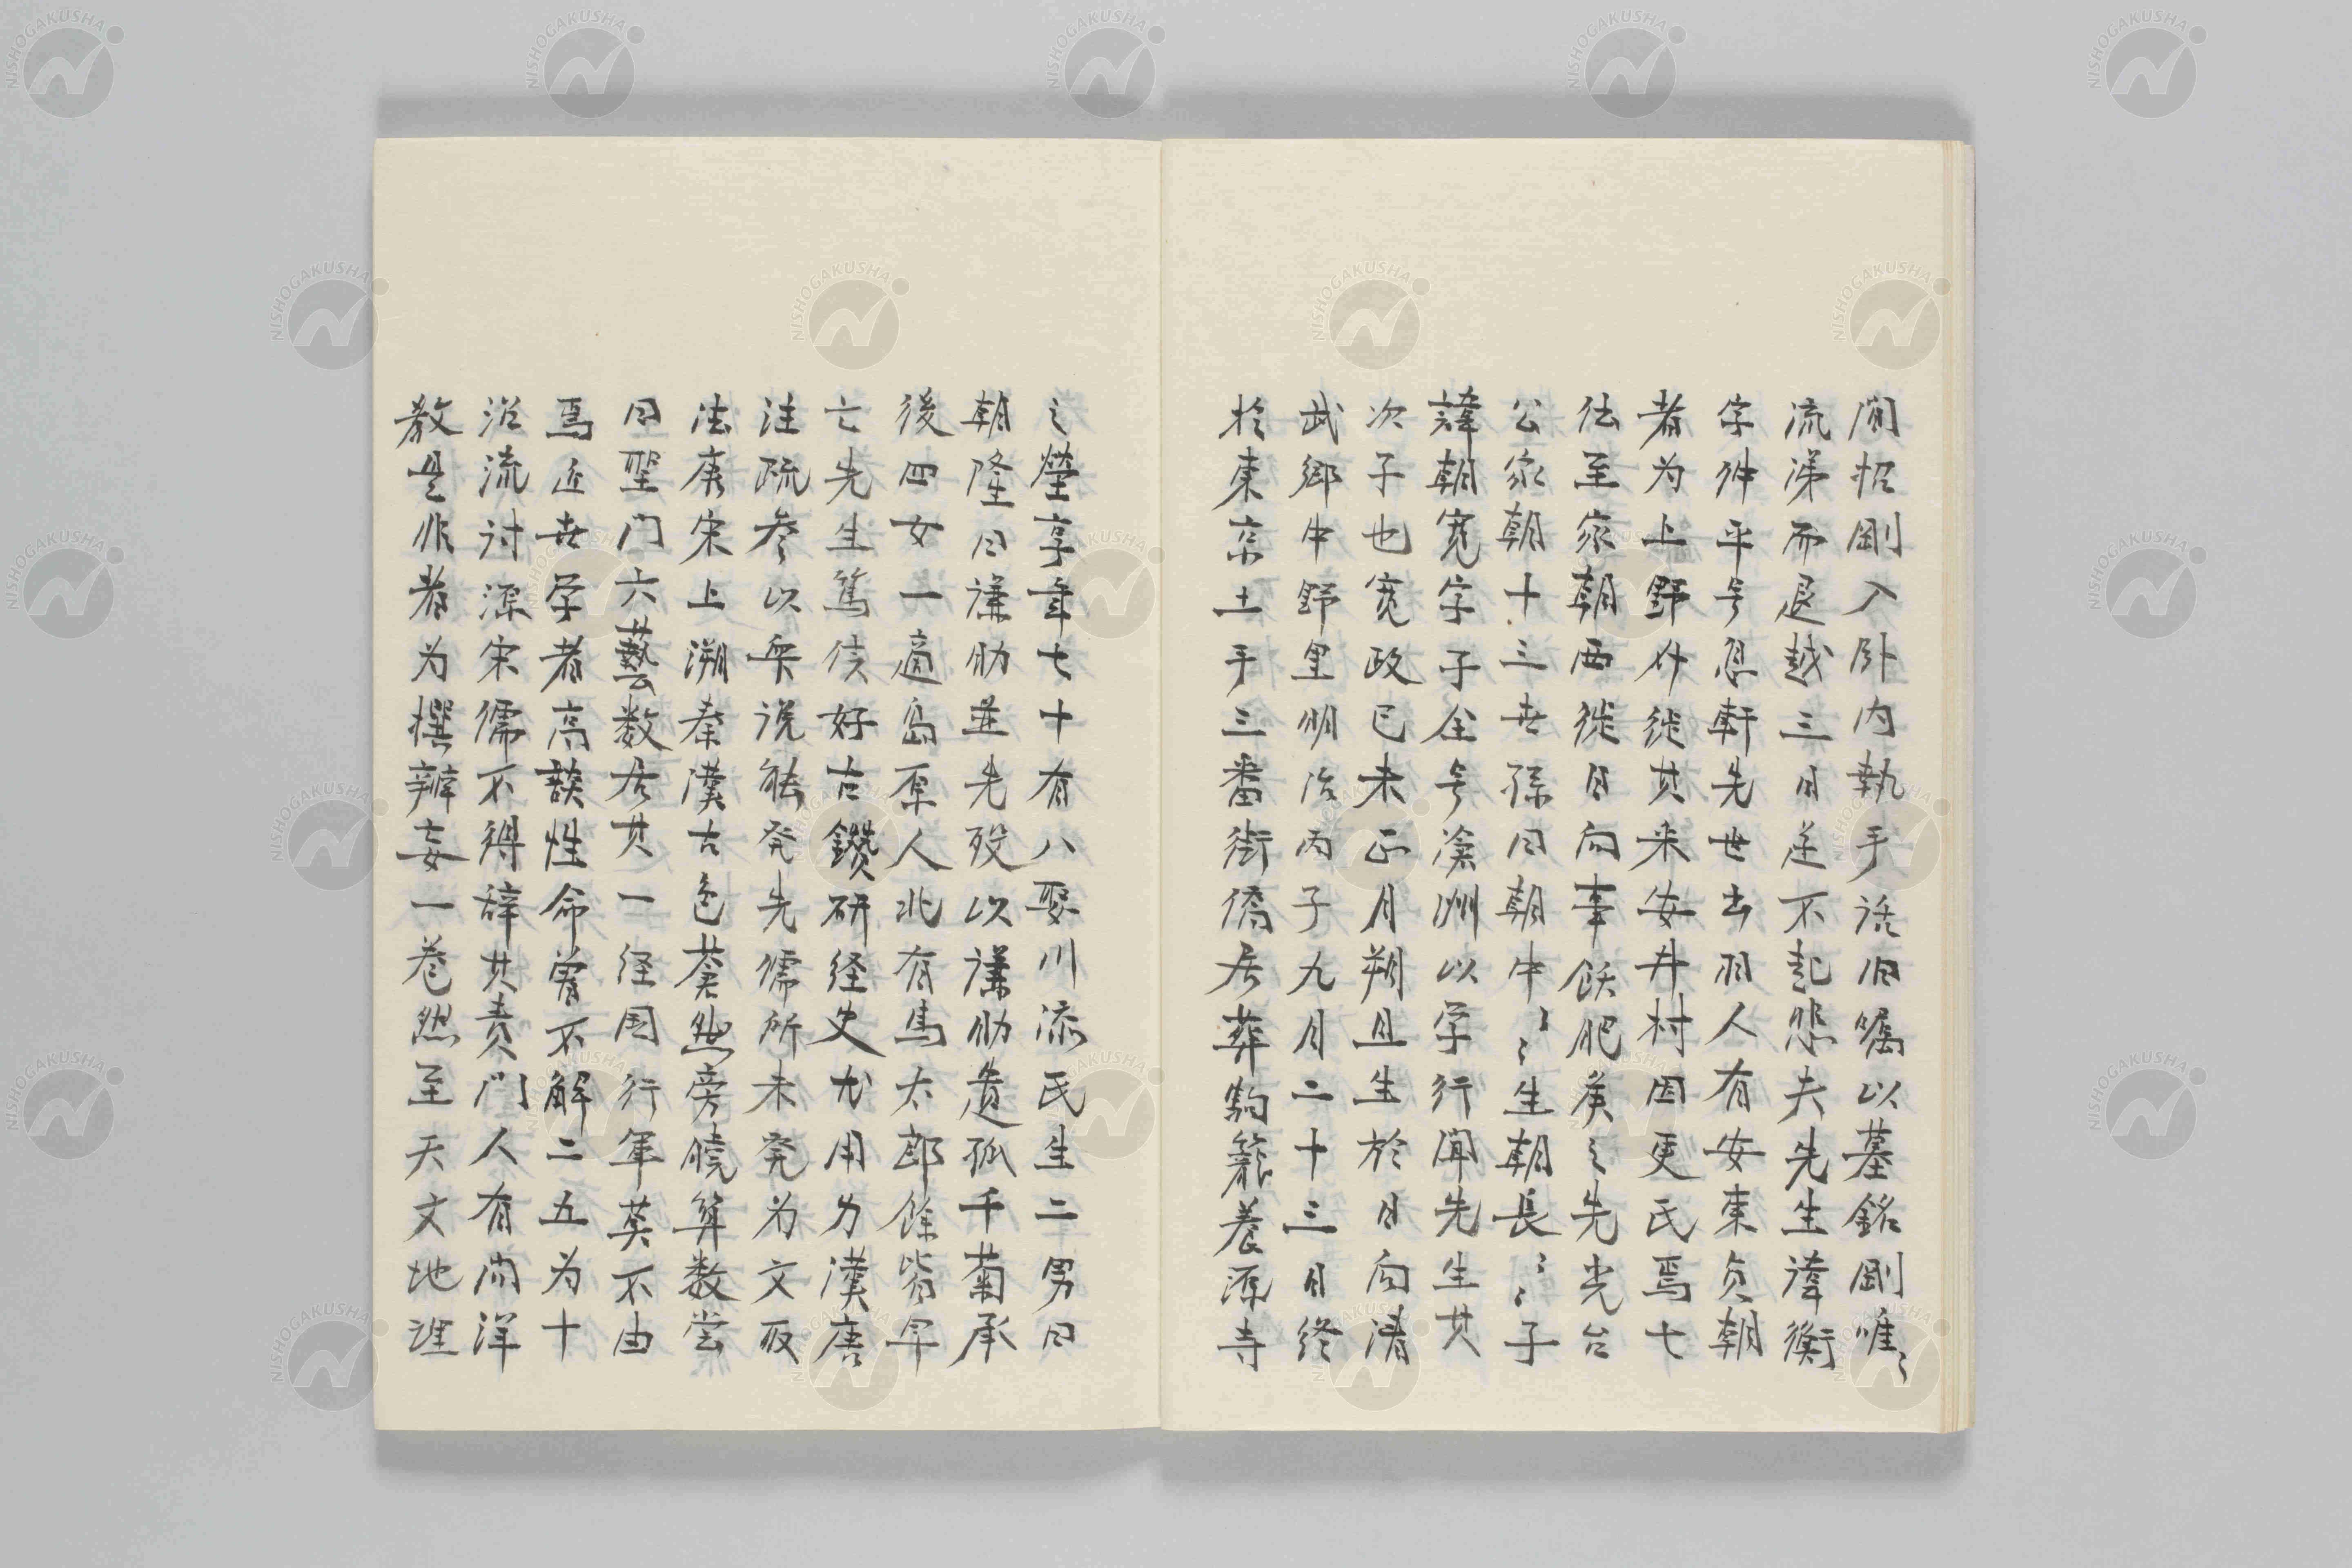 間招剛入卧内執手話旧嘱以墓銘剛唯〻
流涕而退越三日遂不起悲夫先生諱衡
字仲平号息軒先世出羽人有安東貞朝
者为上野介徙其来安井村因更氏焉七
伝至家朝西徙日向事飫肥侯之先光台
公家朝十三世孫曰朝中〻〻生朝長〻〻子
諱朝寛字子全号滄洲以学行聞先生其
次子也寛政己未正月朔旦生於日向清
武郷中野里明治丙子九月二十三日終
於東京土手三番街僑居葬駒籠養源寺
之塋享年七十有八娶川添氏生二男曰
朝隆曰謙助並先殁以謙助遺孤千菊承
後四女一適島原人北有馬太郎餘皆早
亡先生篤信好古鑽研経史尤用力漢唐
注疏参以衆说能発先儒所未発为文取
法唐宋上溯秦漢古色蒼然旁曉算数尝
曰聖门六藝数居其一経国行軍莫不由
焉近世学者高談性命曽不解二五为十
沿流討源宋儒不得辞其责门人有尚洋
教是非者为撰辨妄一巻然至天文地理
NISHOGAKUSHA